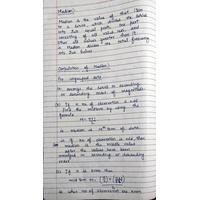 Median:
Median is the value of that item
in a series, which divides the series
into two equal parts, one part
consisting of all values less, and
other all values greater than it.
i.e. Median divides the total frequency
into two halves
Calculation of Median:
For ungrouped data
arrange the series in ascending
or descending order of magnitude.
(a) If n of observation is odd
find the median by using the
formula
M = n+1/2
is median is th term of data.
if no of observation is odd, then
median is the middle value
after the values have been
arranged in ascending or descending
order.
(b) If n is even then
median M =
is when no of observation are even